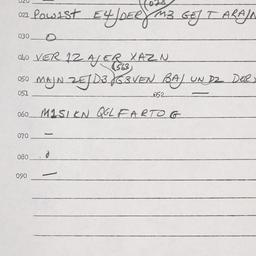 021 POW1ST E4/DER M3 GEJT ARAJN
030 O
040 VER 1Z AJER XAZN
(563)
050 MAJN ZEJD3 G3VEN BAJ UN DZ DER
051 052
060 M1SIKN QGLFARTOG
070 -
080
090 -